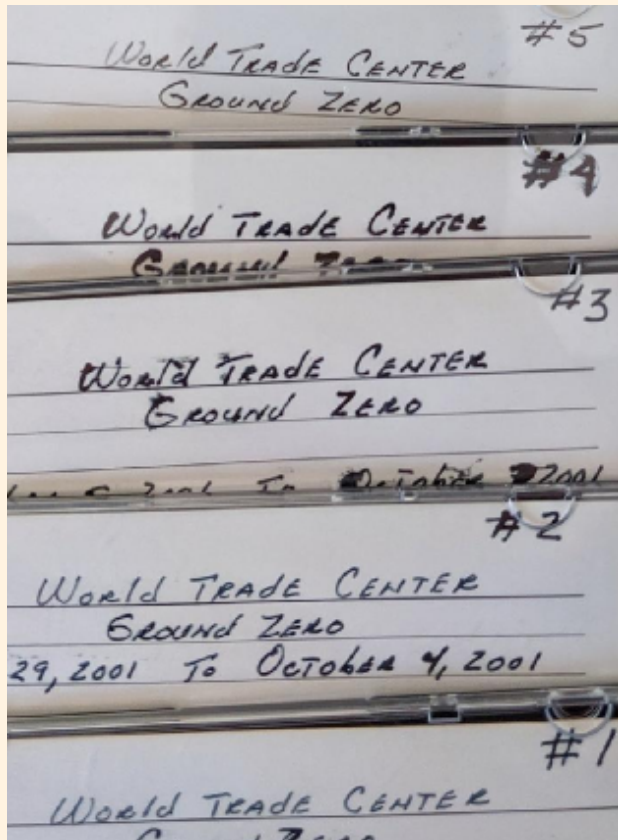 #5
World Trade Center
Ground Zero
#4
World Trade Center
Ground Zero
#3
World Trade Center
Ground Zero
2001 To October 2001
#2
World Trade Center
Ground Zero
29, 2001 To October 4, 2001
#1
World Trade Center
Ground Zero